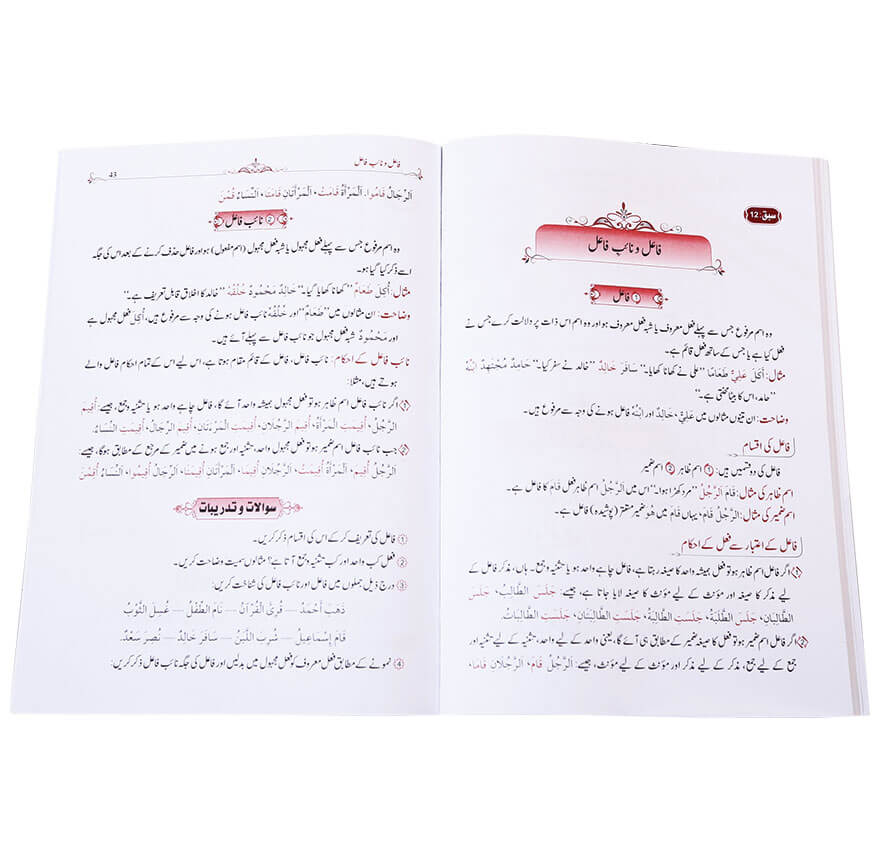 سبق: 12
فاعل و نائب فاعل
① فاعل
وہ اسم مرفوع جس سے پہلے فعل معروف یا شبہ فعل معروف ہو اور وہ اسم اس ذات پر دلالت کرے جس نے
فعل کیا ہے یا جس کے ساتھ فعل قائم ہے۔
مثال: أَكَلَ عَلِيٌّ طَعَامًا ”علی نے کھانا کھایا۔“ سَافَرَ خَالِدٌ ”خالد نے سفر کیا۔“ حَامِدٌ مُجْتَهِدٌ اِبْنُهٗ
”حامد، اس کا بیٹا محنتی ہے۔“
وضاحت: ان تینوں مثالوں میں عَلِيٌّ، خَالِدٌ اور اِبْنُهٗ فاعل ہونے کی وجہ سے مرفوع ہیں۔
فاعل کی اقسام
فاعل کی دو قسمیں ہیں: ① اسم ظاہر ② اسم ضمیر
اسم ظاہر کی مثال: قَامَ الرَّجُلُ ”مرد کھڑا ہوا۔“ اس میں اَلرَّجُلُ اسم ظاہر فعل قَامَ کا فاعل ہے۔
اسم ضمیر کی مثال: اَلرَّجُلُ قَامَ، یہاں قَامَ میں هُوَ ضمیر مستتر (پوشیدہ) فاعل ہے۔
فاعل کے اعتبار سے فعل کے احکام
① اگر فاعل اسم ظاہر ہو تو فعل ہمیشہ واحد کا صیغہ رہتا ہے، فاعل چاہے واحد ہو یا تثنیہ و جمع۔ ہاں، مذکر فاعل کے
لیے مذکر کا صیغہ اور مؤنث کے لیے مؤنث کا صیغہ لایا جاتا ہے، جیسے: جَلَسَ الطَّالِبُ، جَلَسَ
الطَّالِبَانِ، جَلَسَ الطَّلَبَةُ، جَلَسَتِ الطَّالِبَةُ، جَلَسَتِ الطَّالِبَتَانِ، جَلَسَتِ الطَّالِبَاتُ.
② اگر فاعل اسم ضمیر ہو تو فعل کا صیغہ ضمیر کے مطابق ہی آئے گا، یعنی واحد کے لیے واحد، تثنیہ کے لیے تثنیہ اور
جمع کے لیے جمع، مذکر کے لیے مذکر اور مؤنث کے لیے مؤنث، جیسے: اَلرَّجُلُ قَامَ، اَلرَّجُلَانِ قَامَا،
فاعل و نائب فاعل 43
اَلرِّجَالُ قَامُوا، اَلْمَرْأَةُ قَامَتْ، اَلْمَرْأَتَانِ قَامَتَا، اَلنِّسَاءُ قُمْنَ
② نائب فاعل
وہ اسم مرفوع جس سے پہلے فعل مجہول یا شبہ فعل مجہول (اسم مفعول) ہو اور فاعل حذف کرنے کے بعد اس کی جگہ
اسے ذکر کیا گیا ہو۔
مثال: أُكِلَ طَعَامٌ ”کھانا کھایا گیا۔“ خَالِدٌ مَحْمُودٌ خُلُقُهٗ ”خالد کا اخلاق قابل تعریف ہے۔“
وضاحت: ان مثالوں میں ”طَعَامٌ“ اور خُلُقُهٗ نائب فاعل ہونے کی وجہ سے مرفوع ہیں، أُكِلَ فعل مجہول ہے
اور مَحْمُودٌ شبہ فعل مجہول جو نائب فاعل سے پہلے آئے ہیں۔
نائب فاعل کے احکام: نائب فاعل، فاعل کے قائم مقام ہوتا ہے، اس لیے اس کے تمام احکام فاعل والے
ہوتے ہیں، مثلا:
① اگر نائب فاعل اسم ظاہر ہو تو فعل مجہول ہمیشہ واحد آئے گا، فاعل چاہے واحد ہو یا تثنیہ و جمع، جیسے: أُقِيمَ
الرَّجُلُ، أُقِيمَتِ الْمَرْأَةُ، أُقِيمَ الرَّجُلَانِ، أُقِيمَتِ الْمَرْأَتَانِ، أُقِيمَ الرِّجَالُ، أُقِيمَتِ النِّسَاءُ.
② جب نائب فاعل اسم ضمیر ہو تو فعل مجہول واحد، تثنیہ اور جمع ہونے میں ضمیر کے مرجع کے مطابق ہوگا، جیسے:
اَلرَّجُلُ أُقِيمَ، اَلْمَرْأَةُ أُقِيمَتْ، اَلرَّجُلَانِ أُقِيمَا، اَلْمَرْأَتَانِ أُقِيمَتَا، اَلرِّجَالُ أُقِيمُوا، اَلنِّسَاءُ أُقِمْنَ
سوالات و تدریبات
① فاعل کی تعریف کر کے اس کی اقسام ذکر کریں۔
② فعل کب واحد اور کب تثنیہ و جمع آتا ہے؟ مثالوں سمیت وضاحت کریں۔
③ درج ذیل جملوں میں فاعل اور نائب فاعل کی شناخت کریں:
ذَهَبَ أَحْمَدُ — قُرِئَ الْقُرْآنُ — نَامَ الطِّفْلُ — غُسِلَ الثَّوْبُ
قَامَ إِسْمَاعِيلُ — شُرِبَ اللَّبَنُ — سَافَرَ خَالِدٌ — نُصِرَ سَعْدٌ.
④ نمونے کے مطابق فعل معروف کو فعل مجہول میں بدلیں اور فاعل کی جگہ نائب فاعل ذکر کریں: